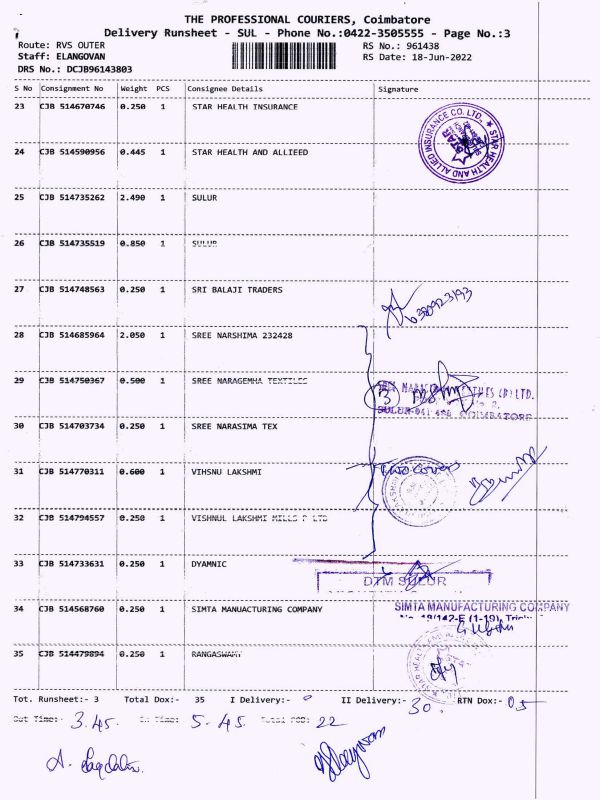 THE PROFESSIONAL COURIERS, Coimbatore
Delivery Runsheet - SUL - Phone No.:0422-3505555 - Page No.:3
Route: RVS OUTER RS No.: 961438
Staff: ELANGOVAN RS Date: 18-Jun-2022
DRS No.: DCJB96143803
S No Consignment No Weight PCS Consignee Details Signature
23 CJB 514670746 0.250 1 STAR HEALTH INSURANCE
STAR HEALTH AND ALLIED INSURANCE CO. LTD.
STAR
24 CJB 514590956 0.445 1 STAR HEALTH AND ALLIEED
25 CJB 514735262 2.490 1 SULUR
26 CJB 514735519 0.850 1 SULUR
27 CJB 514748563 0.250 1 SRI BALAJI TRADERS
28 CJB 514685964 2.050 1 SREE NARSHIMA 232428
29 CJB 514750367 0.500 1 SREE NARAGEMHA TEXTILES
3
(P) LTD.
SULUR-641 COIMBATORE
30 CJB 514703734 0.250 1 SREE NARASIMA TEX
31 CJB 514770311 0.600 1 VIHSNU LAKSHMI
Two covers
32 CJB 514794557 0.250 1 VISHNUL LAKSHMI MILLS P LTD
33 CJB 514733631 0.250 1 DYAMNIC
DTM SULUR
34 CJB 514568760 0.250 1 SIMTA MANUACTURING COMPANY SIMTA MANUFACTURING COMPANY
No. 19/142-E (1-19),
35 CJB 514479894 0.250 1 RANGASWAMY
Tot. Runsheet:- 3 Total Dox:- 35 I Delivery:- II Delivery:- 30. RTN Dox:- 05
Out Time:- 3.45. In Time: 5-45. Total POD: 22